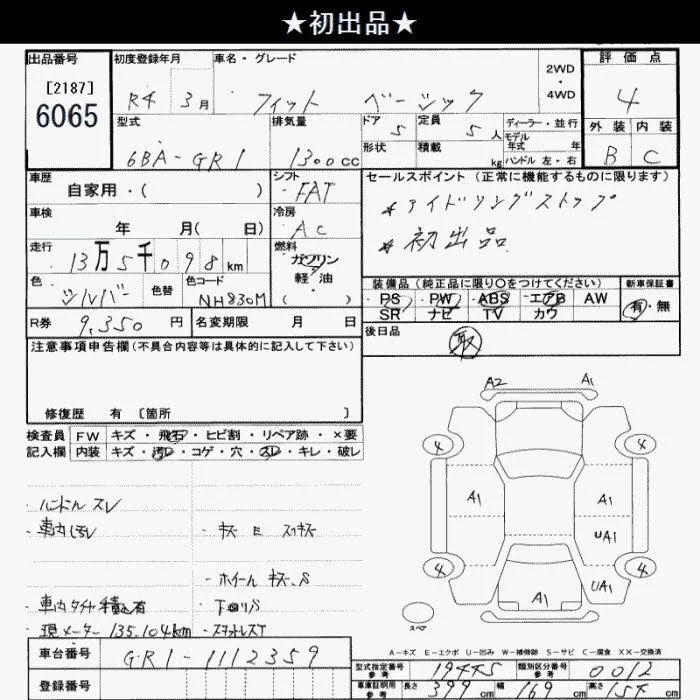 ★初出品★
出品番号 初度登録年月 車名・グレード 2WD・4WD 評価点
[2187]
6065 R4 3月 フィット ベーシック 4
型式 排気量 ドア 定員 ディーラー・並行 外装 内装
6BA-GR1 1300cc 5 5人 モデル年式 年 B C
形状 積載 kg ハンドル 左・右
車歴 シフト セールスポイント (正常に機能するものに限ります)
自家用・( ) FAT *アイドリングストップ
車検 冷房 *初出品
年 月( 日) AC
走行 燃料
13万5千098km ガソリン
色 色替 色コード 軽・油
シルバー NH830M ( )
装備品 (純正品に限り○をつけてください) 新車保証書
PS PW ABS エアB AW 有・無
SR ナビ TV カワ
R券 9,350円 名変期限 月 日 後日品
取
注意事項申告欄(不具合内容等は具体的に記入して下さい)
修復歴 有 〔箇所 〕
検査員 FW キズ・飛石・ヒビ割・リペア跡・×要
記入欄 内装 キズ・汚レ・コゲ・穴・スレ・キレ・破レ
A2 A1
4 4
A1 A1
UA1
4 4
A1 UA1
スペア
・ハンドルスレ
・車内汚レ ・キズE スリキズ
・ホイールキズ、S
・車内タイヤ積込有 ・下回りS
・現メーター135,104km ・スタットレスT
A-キズ E-エクボ U-凹み W-補修跡 S-サビ C-腐食 XX-交換済
車台番号 GR1-1112359
型式指定番号 参考 19445 類別区分番号 参考 0012
登録番号
車庫証明用 参考 長さ 399cm 幅 169cm 高さ 154cm